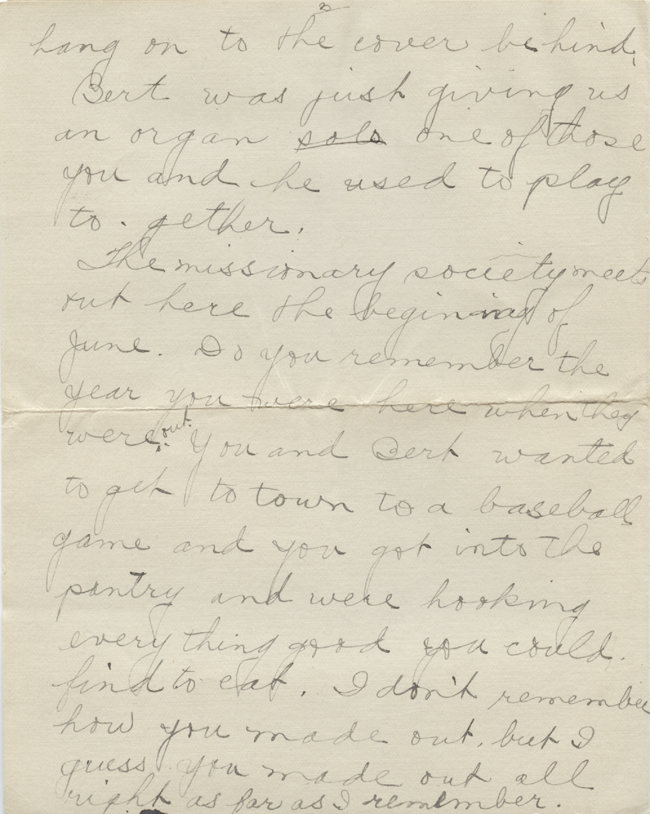 hang on to the cover behind.
Bert was just giving us
an organ solo one of those
you and he used to play
to. gether.
The missionary society meets
out here the beginning of
June. Do you remember the
year you were here when they
were out. You and Bert wanted
to get to town to a baseball
game and you got into the
pantry and were hooking
every thing good you could.
find to eat. I don't remember
how you made out, but I
guess you made out all
right as far as I remember.